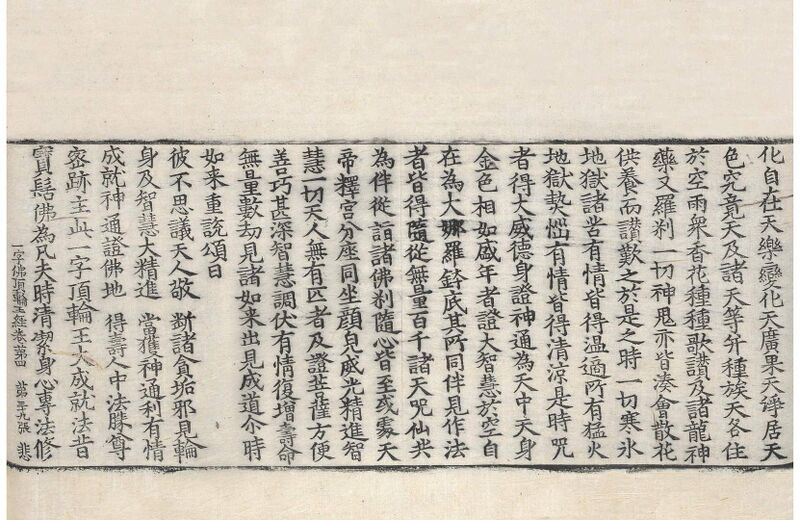 化自在天樂變化天廣果天淨居天
色究竟天及諸天等幷種族天各住
於空雨衆香花種種歌讚及諸龍神
藥叉羅刹一切神鬼亦皆湊會散花
供養而讚歎之於是之時一切寒氷
地獄諸苦有情皆得溫適所有猛火
地獄熱惱有情皆得清涼是時咒
者得大威德身證神通為天中天身
金色相如盛年者證大智慧於空自
在為大娜羅鉢底其所同伴見作法
者皆得隨從無量百千諸天咒仙共
為伴從詣諸佛刹隨心皆至或處天
帝釋宮分座同坐顔皃威光精進智
慧一切天人無有匹者及證菩薩方便
善巧甚深智慧調伏有情復增壽命
無量數劫見諸如来出見成道尒時
如来重說頌曰
彼不思議天人敬 斷諸貪垢邪見輪
身及智慧大精進 當獲神通利有情
成就神通證佛地 得壽人中法勝尊
密跡主此一字頂輪王大成就法昔
寶髻佛為凡夫時清潔身心專法修
一字佛頂輪王經卷第四 第二十九張 悲